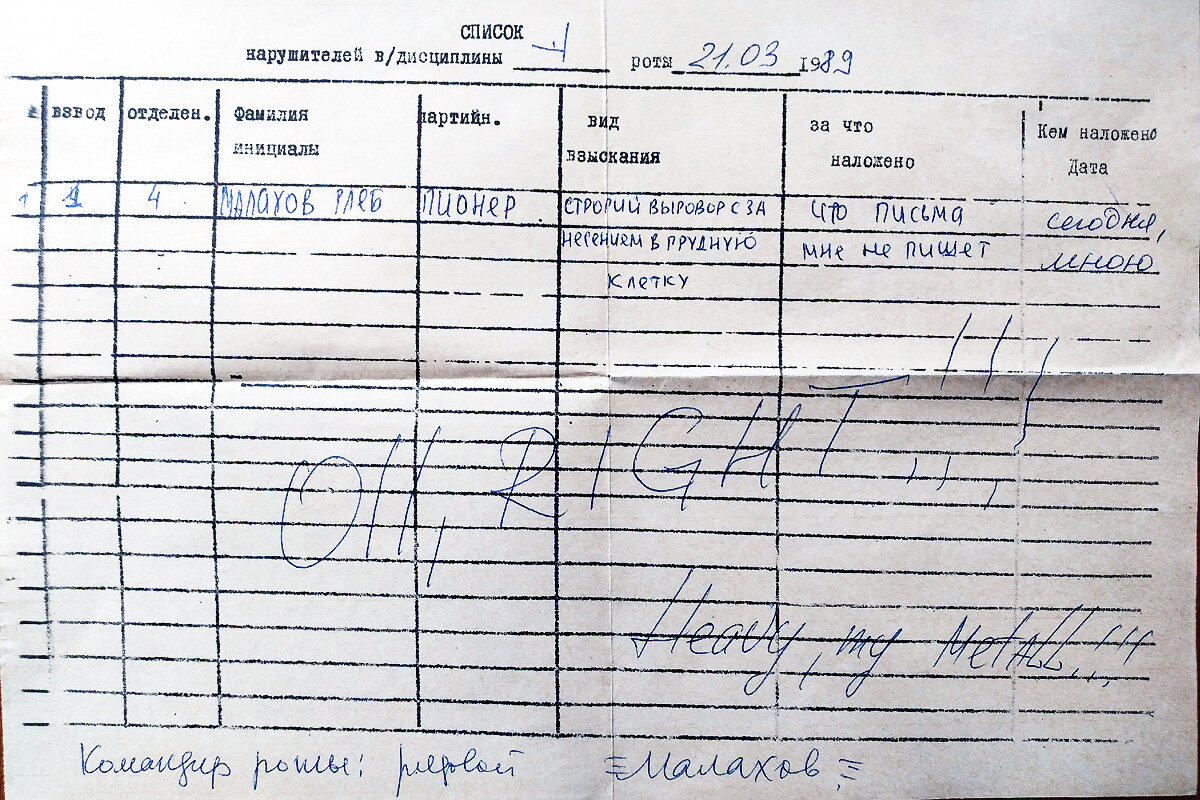 СПИСОК
нарушителей в/дисциплины 4 роты 21.03 1989
взвод отделен. Фамилия инициалы партийн. вид взыскания за что наложено Кем наложено Дата
1 1 4 МАЛАХОВ ГЛЕБ ПИОНЕР СТРОГИЙ ВЫГОВОР С ЗА ЧТО ПИСЬМА сегодня,
НЕСЕНИЕМ В ГРУДНУЮ МНЕ НЕ ПИШЕТ мною
КЛЕТКУ
OH, RIGHT...!!!
Heavy, my MetALL!!!
Командир роты: рядовой Малахов